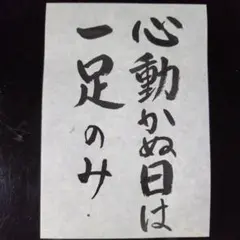 心動かぬ日は
一足のみ.